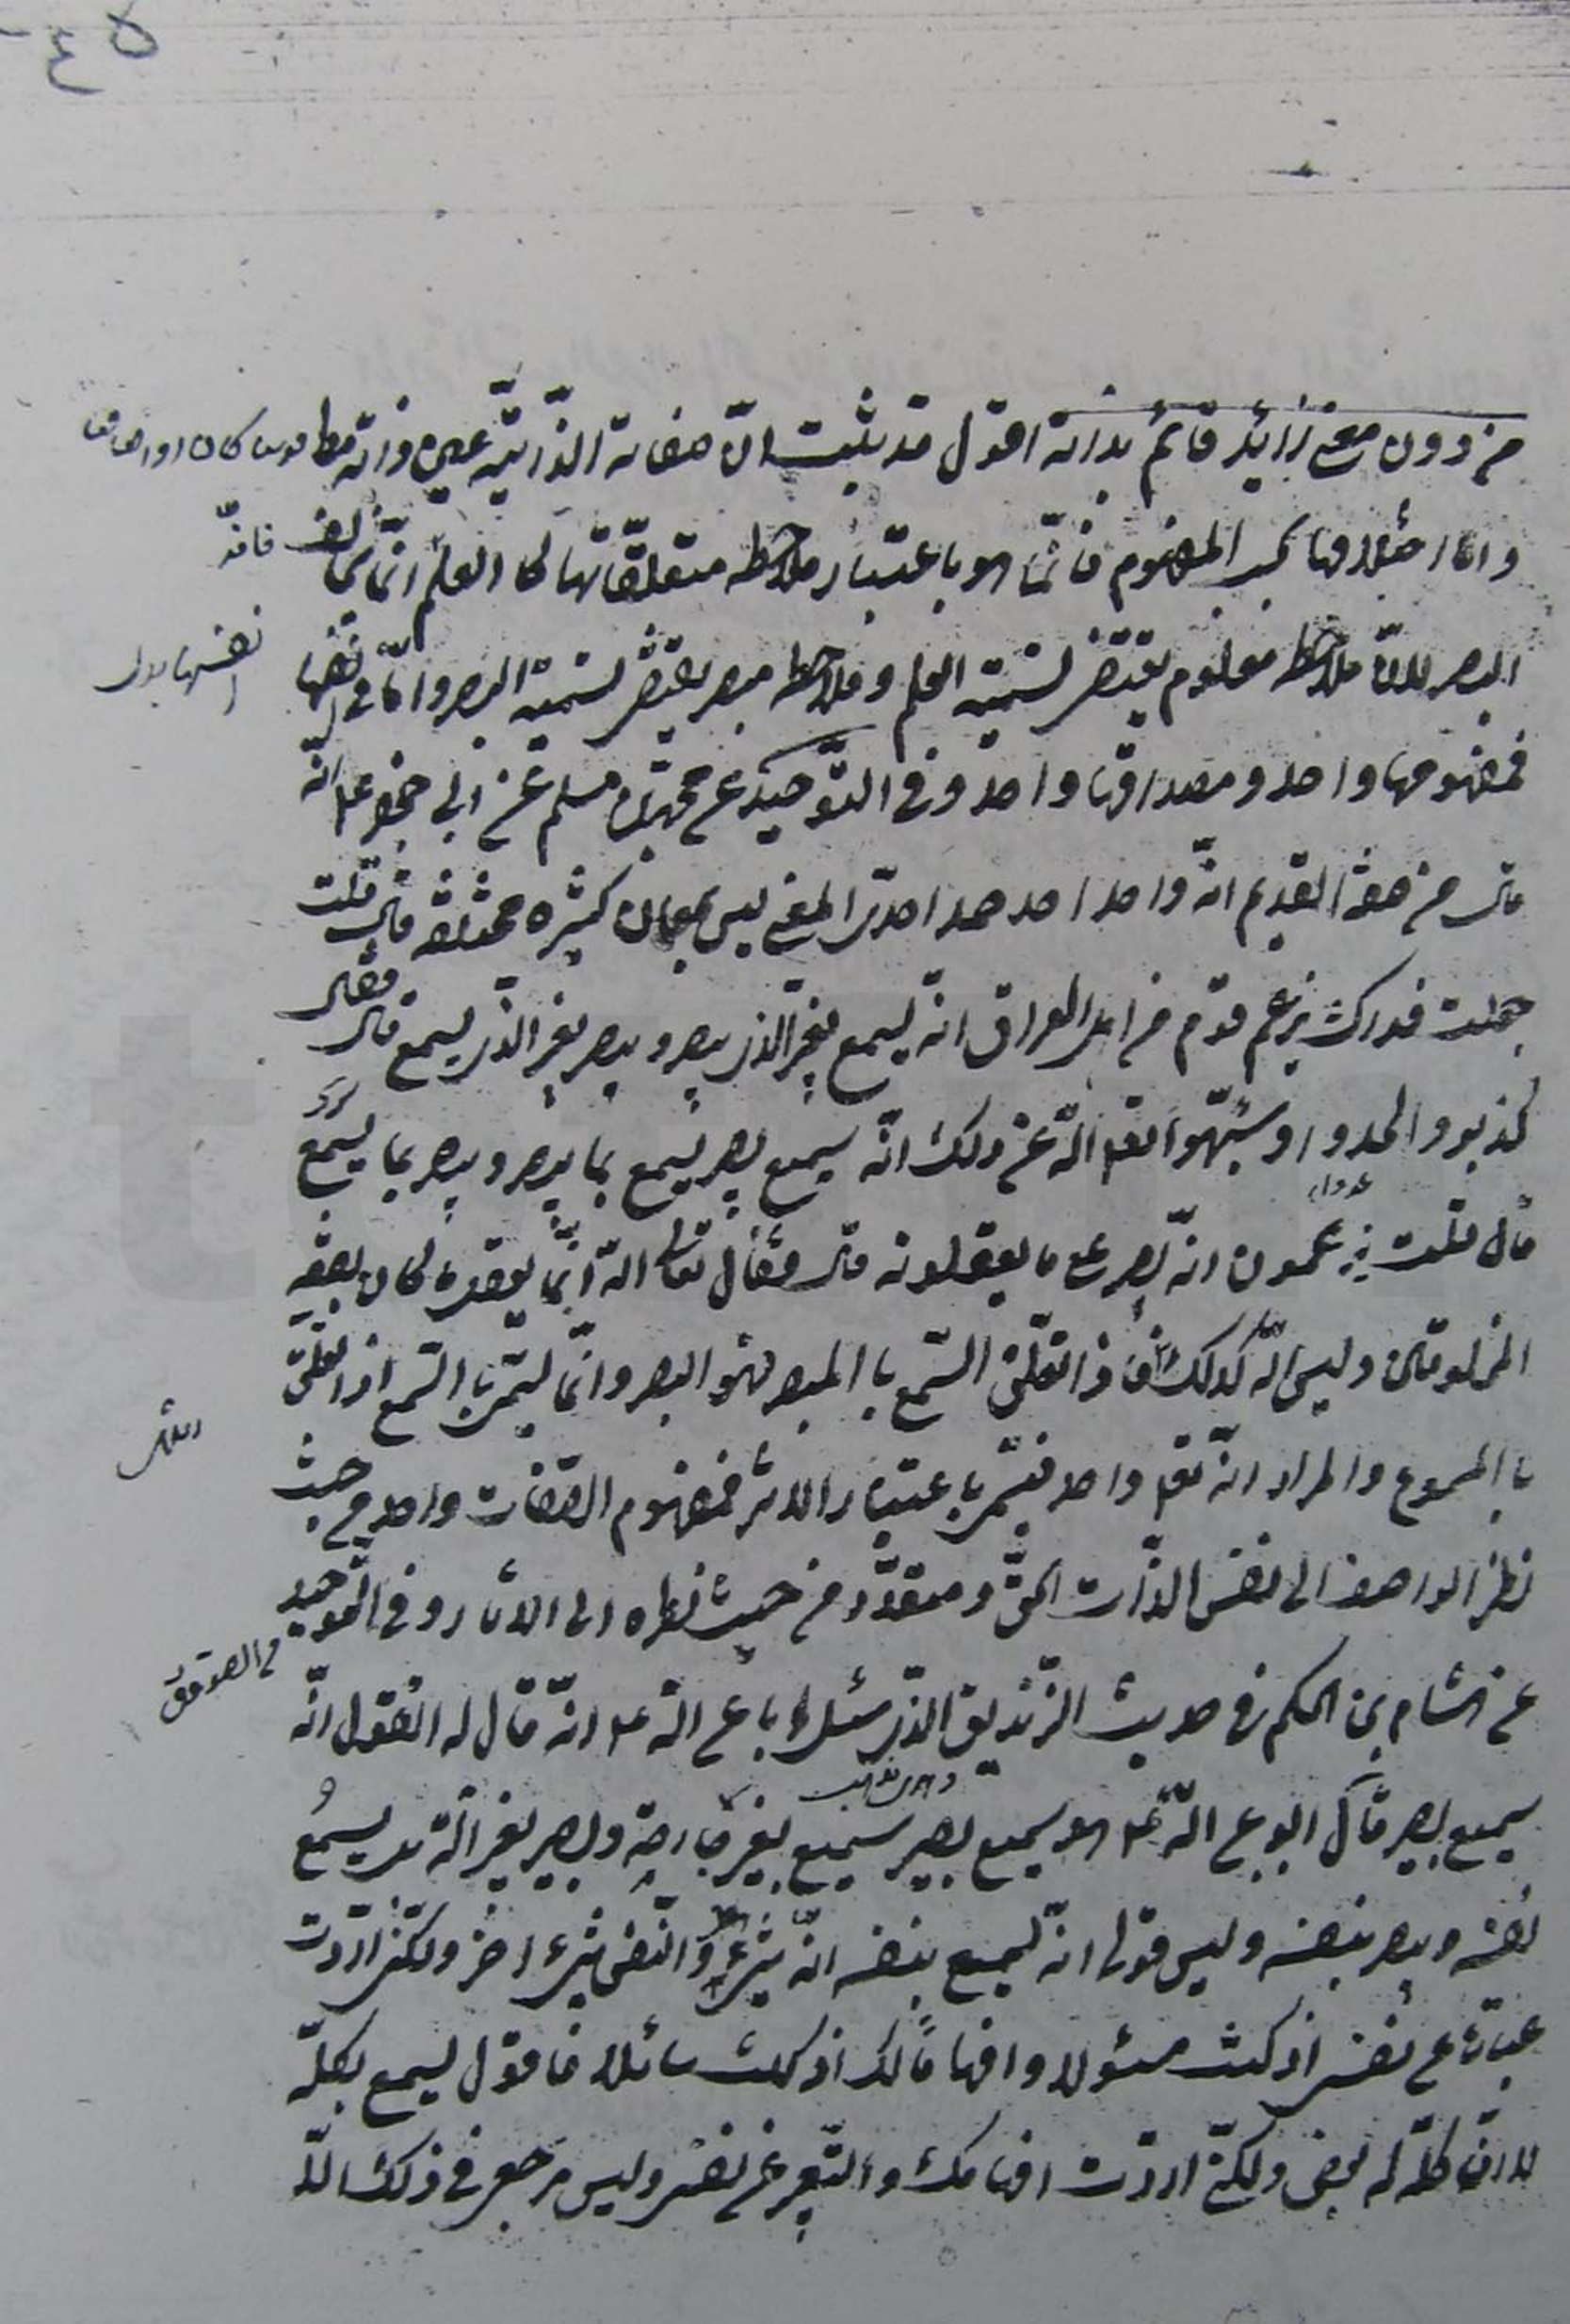 ٤٥
من دون معنى زائد قائم بذاته اقول قد ثبت انّ صفاته الذّاتيّة عين ذاته
وامّا اختلافها بحسب المفهوم فانّما هو باعتبار ملاحظه متعلقّاتها كما العلم انّما
البصر لانّ ملاحظه معلوم يقتضى تسميته العلم وملاحظه مبصر يقتضى تسميته البصر وامّا فى نفسها
نفسها
فمفهومها واحد ومصداقها واحد وفى التوّحيد عن محمّد بن مسلم عن ابى جعفر ع انّه
قال من صفة القديم انّه واحد احد صمد احدىّ المعنى ليس بمعان كثيره مختلفه قال قلت
جعلت فداك يزعم قوم من اهل العراق انّه يسمع بغير الّذى يبصر ويبصر بغير الّذى يسمع قال فقال
كذبوا والحدوا وشبّهوا تعالى اللّه عن ذلك انّه سميع بصير يسمع بما يبصر ويبصر بما يسمع
قال قلت يزعمون انّه بصير على ما يعقلونه قال فقال تعالى اللّه انّما يعقل ما كان بصفة
المخلوقين وليس اللّه كذلك فاذا تعلّق السّمع باالمبصر فهو البصر وانّما يسمّى باالسّمع اذا تعلّق
باالمسموع والمراد انّه تعالى واحد فيسمّى باعتبار الاثر فمفهوم الصّفات واحد من حيث
نظر الواصف الى نفس الذّات الحقّ ومتعدّد من حيث نظره الى الاثار وفى التّوحيد
عن هشام بن الحكم فى حديث الزّنديق الّذى سئل اباعبد اللّه ع انّه قال له اتقول انّه
سميع بصير قال ابوعبد اللّه ع هو سميع بصير سميع بغير جارحة وبصير بغير آلة بل يسمع
بنفسه ويبصر بنفسه وليس قولى انّه يسمع بنفسه انّه شىء والنّفس شىء اخر ولكنّى اردت
عبارة عن نفسى اذ كنت مسئولا وافهاماً لك اذ كنت سائلا فاقول يسمع بكلّه
لا انّ كلّه له بعض ولكنّى اردت افهامك والتّعبير عن نفسى وليس مرجعى فى ذلك الّا